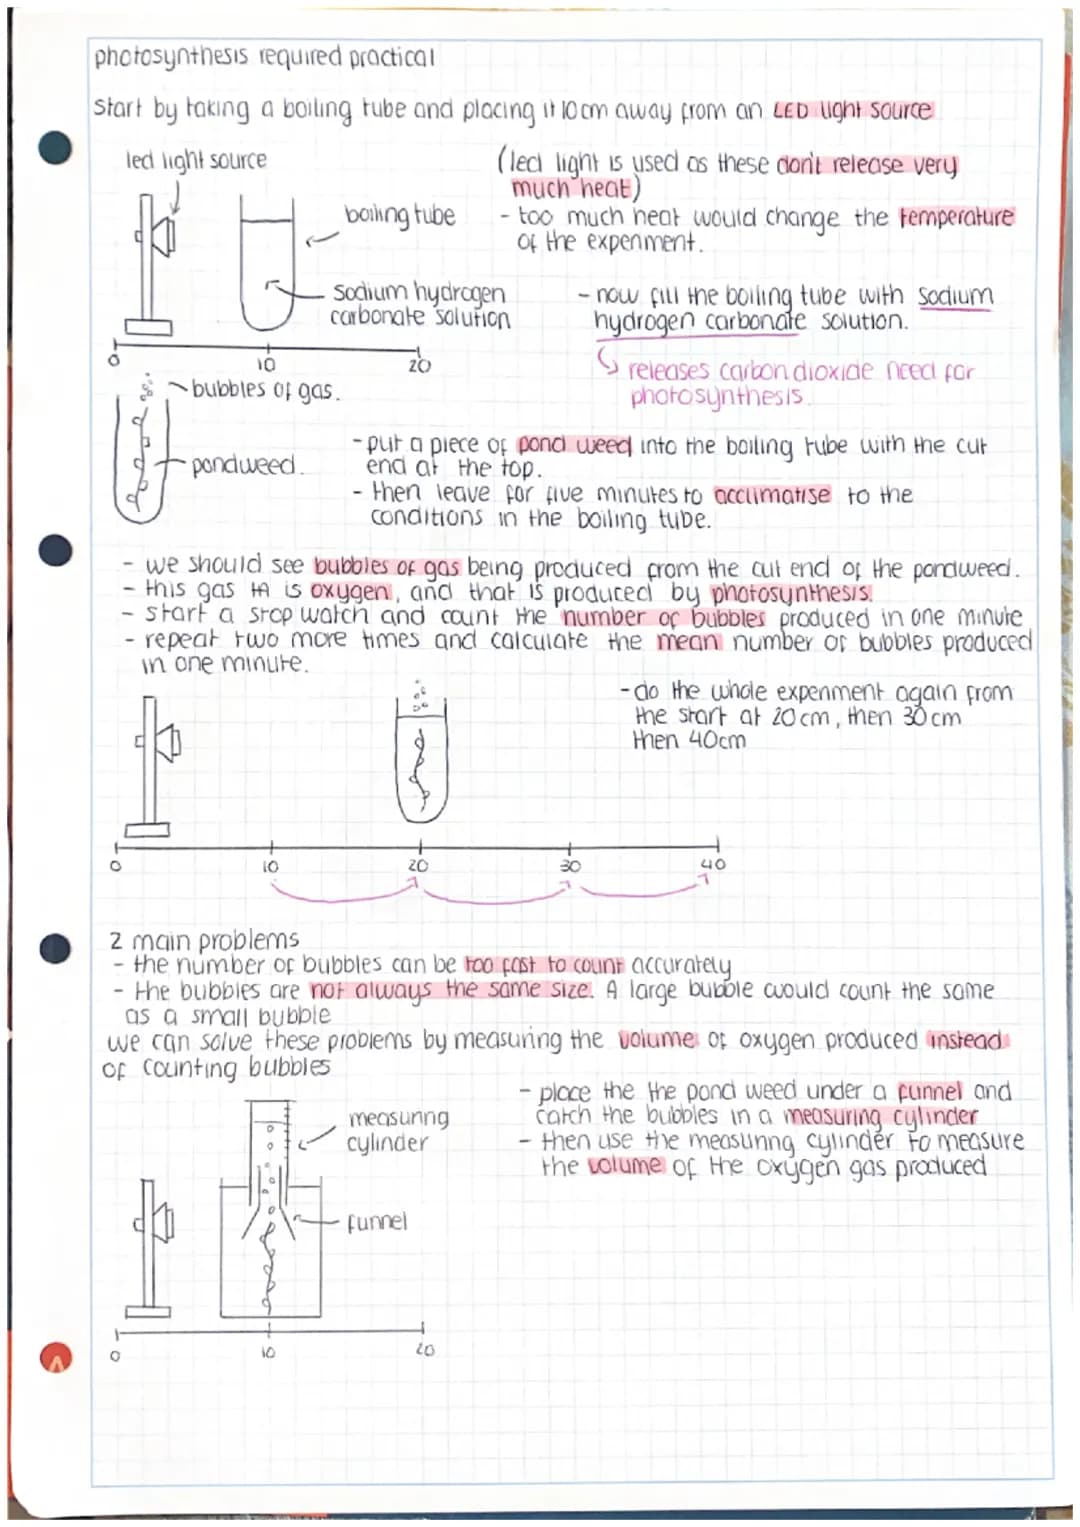 photosynthesis required practical
start by taking a boiling tube and placing it 10cm away from an LED light source
led light source
(led light is used as these don't release very
much heat)
boiling tube
- too much heat would change the temperature
of the experiment.
sodium hydrogen
carbonate solution
- now fill the boiling tube with sodium
hydrogen carbonate solution.
0 10 20
releases carbon dioxide need for
photosynthesis.
bubbles of gas.
- put a piece of pond weed into the boiling tube with the cut
end at the top.
pondweed.
- then leave for five minutes to acclimatise to the
conditions in the boiling tube.
- we should see bubbles of gas being produced from the cut end of the pondweed.
- this gas is oxygen, and that is produced by photosynthesis.
- start a stop watch and count the number of bubbles produced in one minute
- repeat two more times and calculate the mean number of bubbles produced
in one minute.
- do the whole experiment again from
the start at 20cm, then 30cm
then 40cm
0 10 20 30 40
2 main problems
- the number of bubbles can be too fast to count accurately
- the bubbles are not always the same size. A large bubble would count the same
as a small bubble
we can solve these problems by measuring the volume of oxygen produced instead
of counting bubbles
- place the the pond weed under a funnel and
catch the bubbles in a measuring cylinder
measuring
cylinder
- then use the measuring cylinder to measure
the volume of the oxygen gas produced
funnel
0 10 20